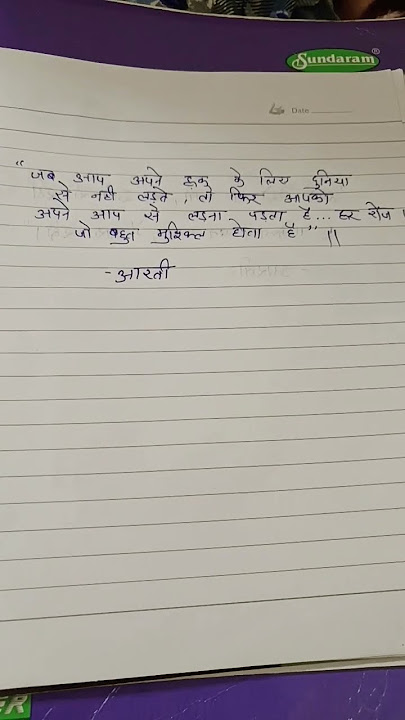 Sundaram®
Date
“जब आप अपने हक के लिए दुनिया
से नहीं लड़ते, तो फिर आपको
अपने आप से लड़ना पड़ता है... हर रोज।
जो बहुत मुश्किल होता है” ||
-आरती